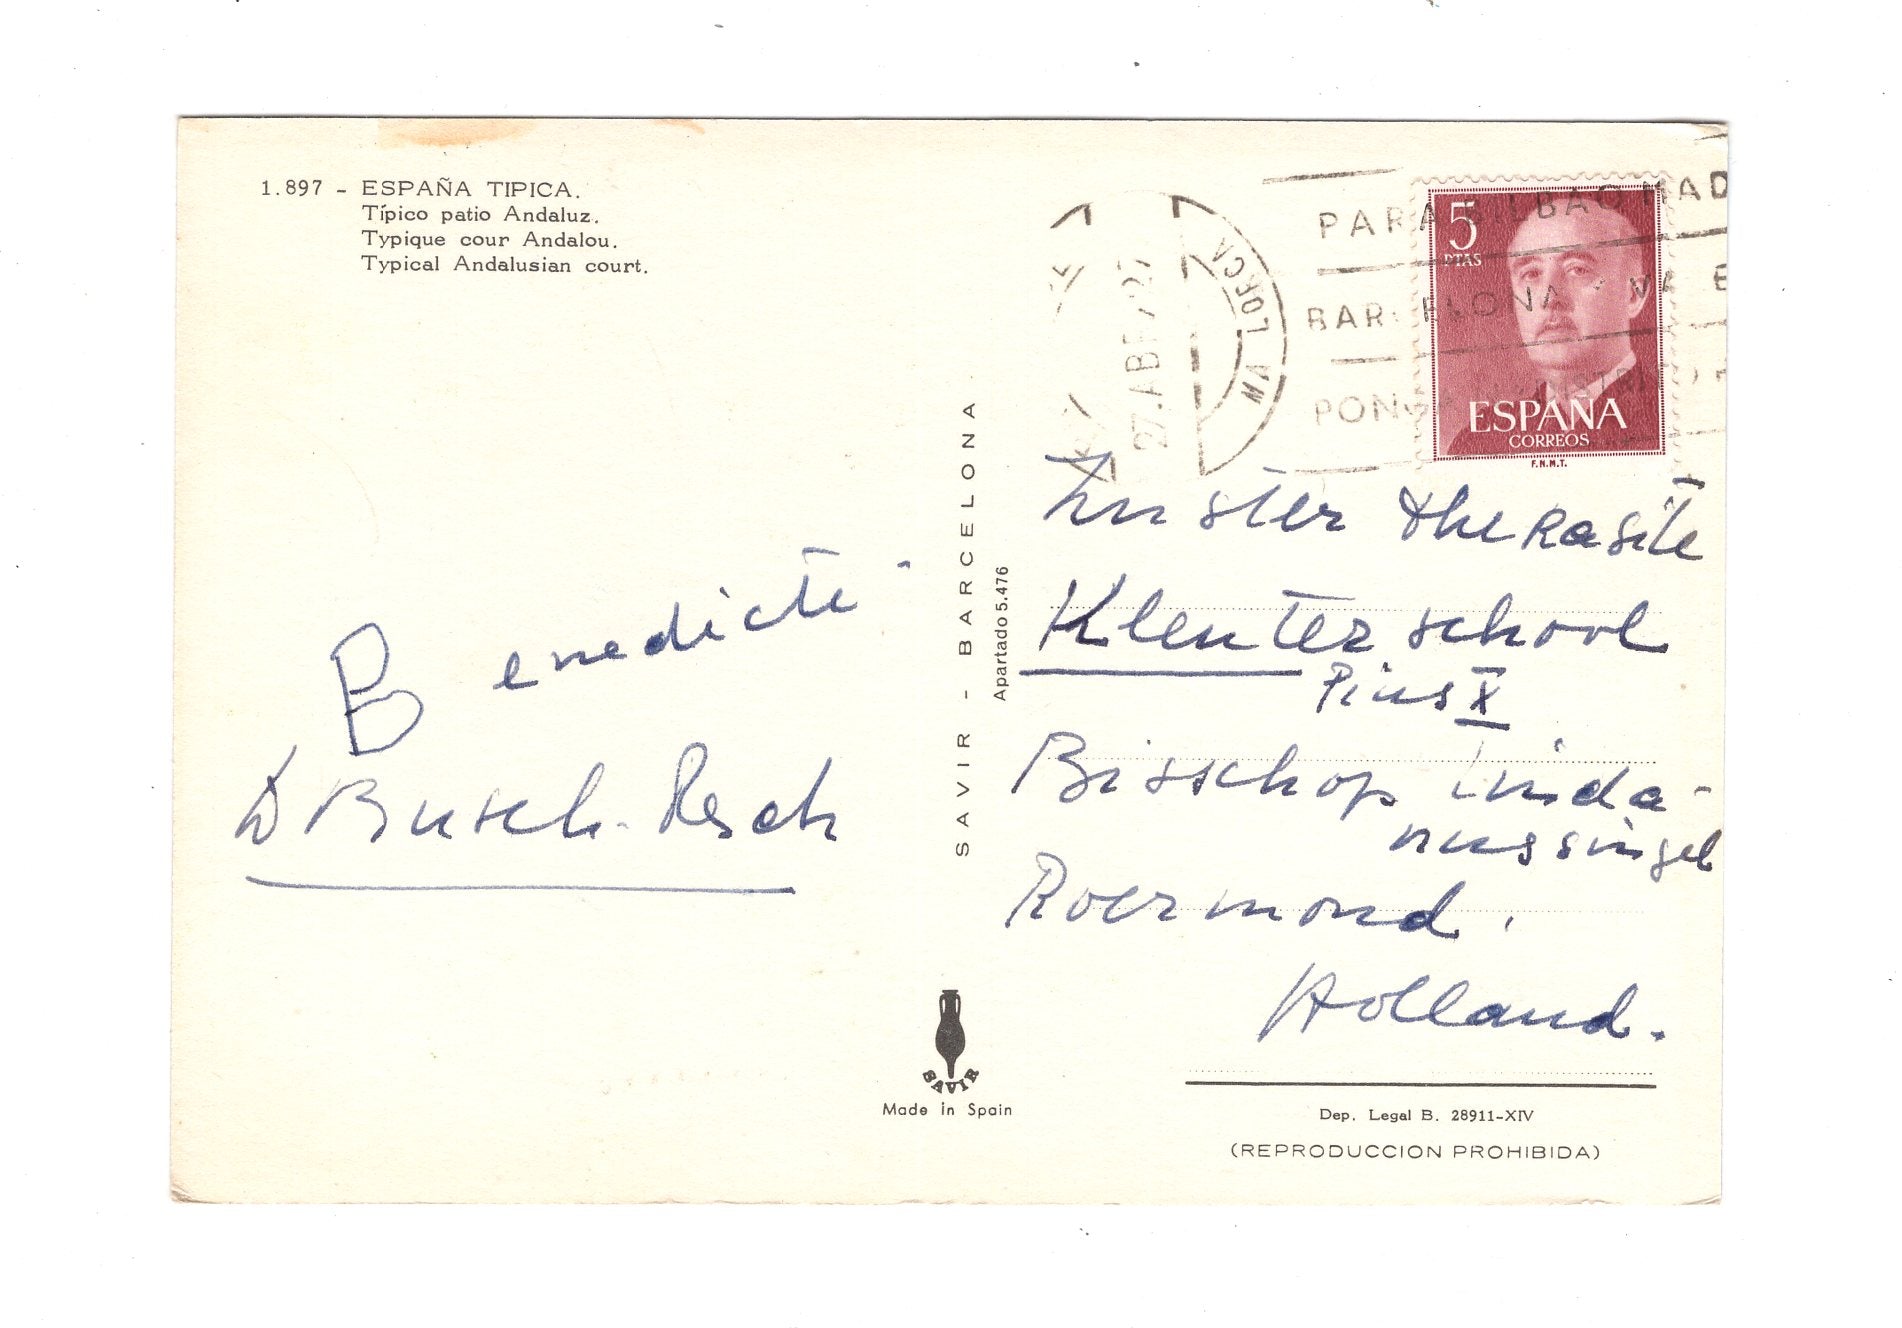 1.897 - ESPAÑA TIPICA.
Típico patio Andaluz.
Typique cour Andalou.
Typical Andalusian court.
Benedicte -
D Busch-Resch
SAVIR - BARCELONA.
Apartado 5.476
SAVIR
Made in Spain
MALLORCA
27.ABR
PARA BILBAO MAD
BARCELONA
5
PTAS
ESPAÑA
CORREOS
F.N.M.T.
Zuster Therasite
Kleuterschool
Pius X
Bisschop Linda-
nussingel
Roermond.
Holland.
Dep. Legal B. 28911-XIV
(REPRODUCCION PROHIBIDA)